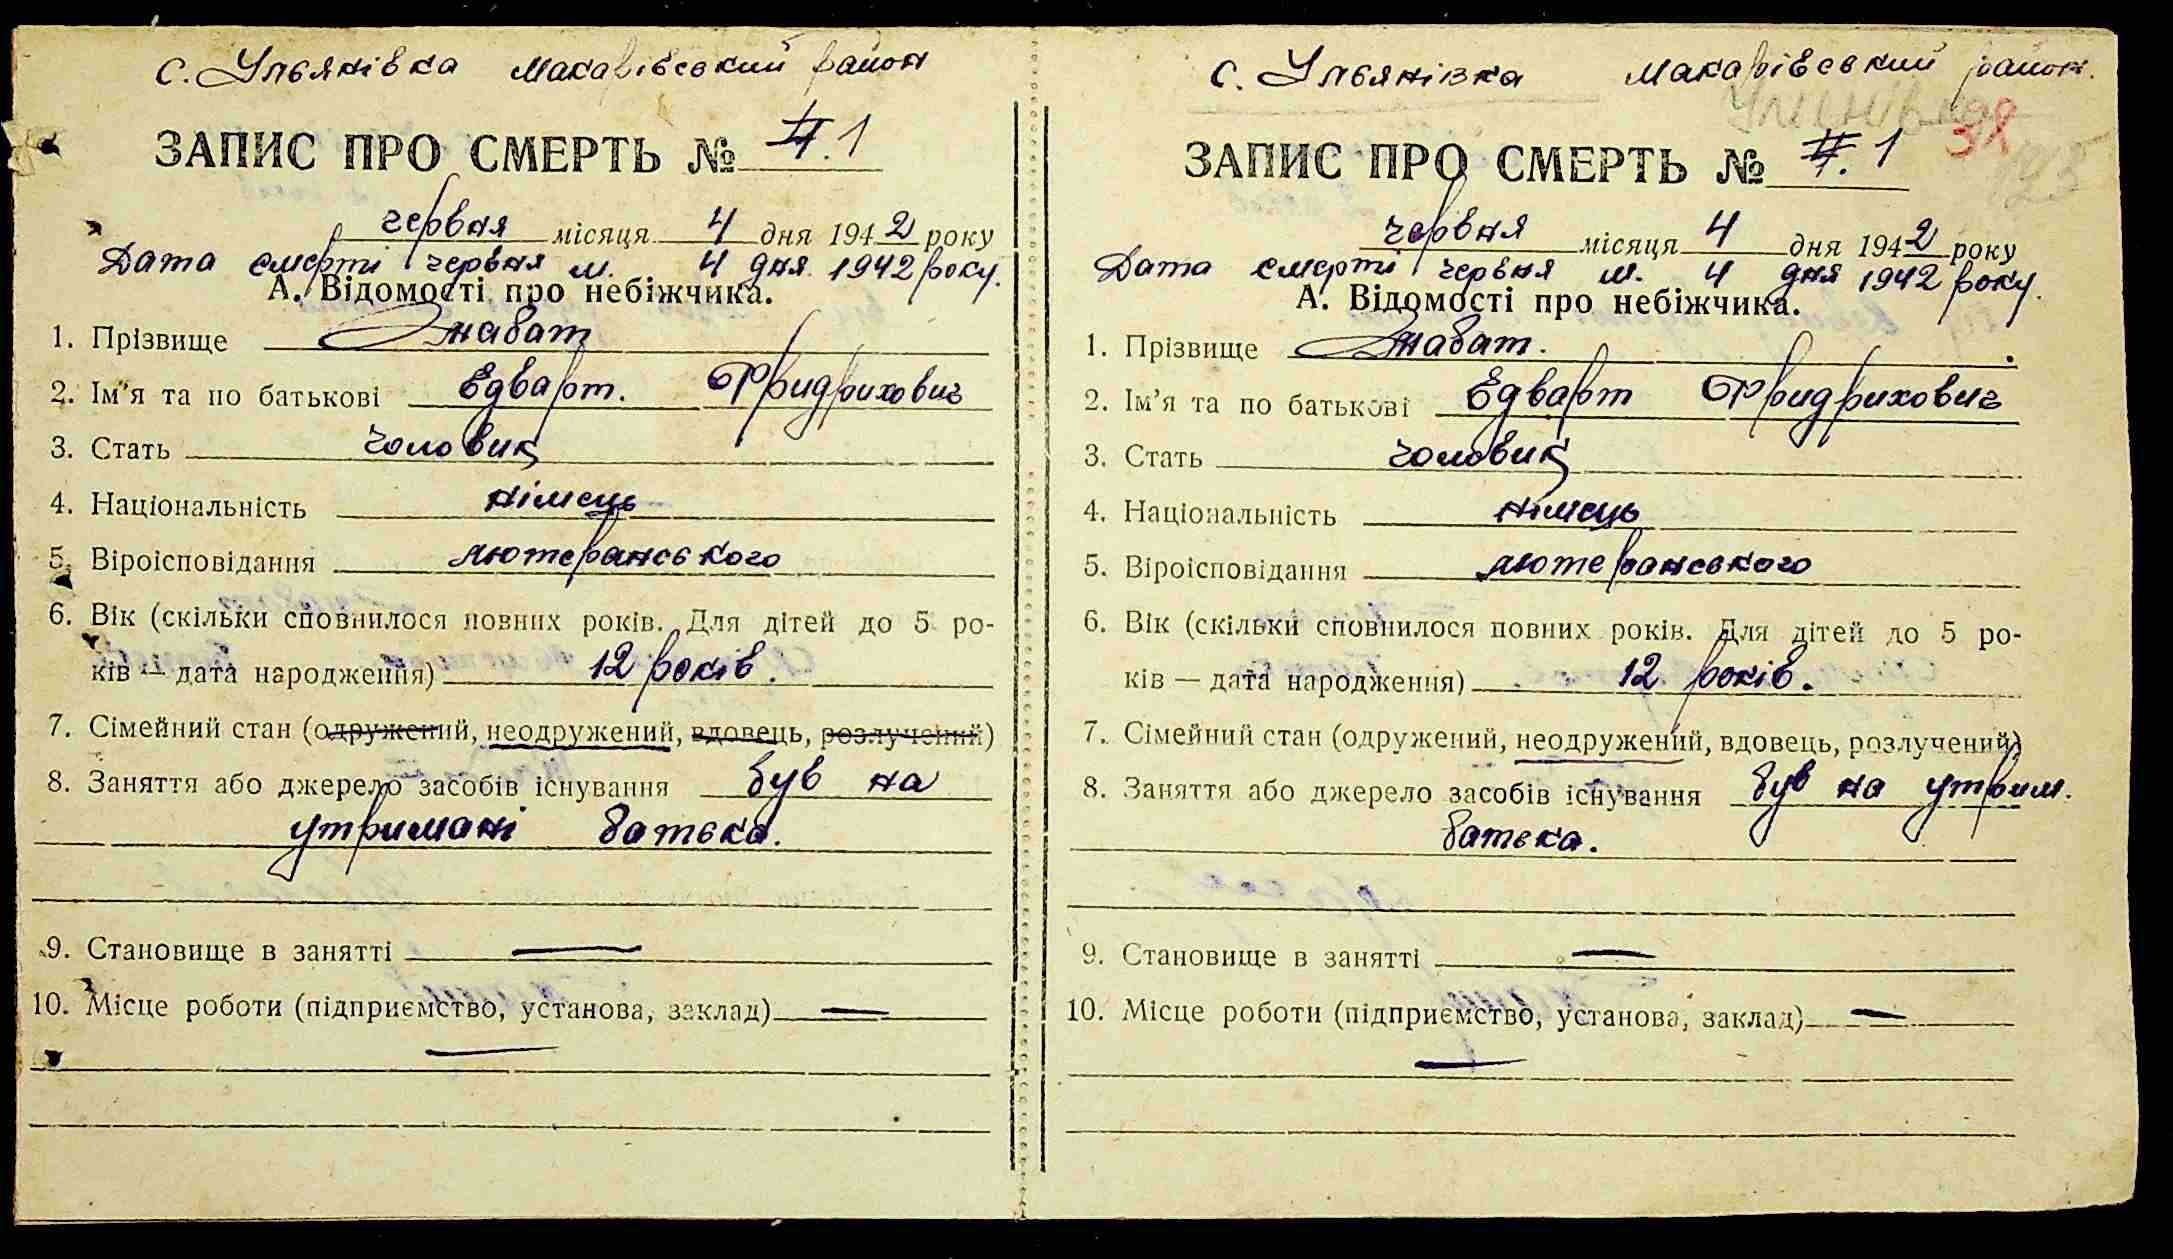 с. Ульянівка Макарівський район
ЗАПИС ПРО СМЕРТЬ № 1
червня місяця 4 дня 1942 року
Дата смерті червня м. 4 дня 1942 року.
А. Відомості про небіжчика.
1. Прізвище
2. Ім'я та по батькові Едварт. Фридрихович
3. Стать чоловик
4. Національність німець
5. Віроісповідання лютеранського
6. Вік (скільки сповнилося повних років. Для дітей до 5 ро-
ків — дата народження) 12 років.
7. Сімейний стан (одружений, неодружений, вдовець, розлучений)
8. Заняття або джерело засобів існування був на
утримані батька.
9. Становище в занятті —
10. Місце роботи (підприємство, установа, заклад) —
—
с. Ульянівка Макарівський район.
Улянівка
ЗАПИС ПРО СМЕРТЬ № 1
червня місяця 4 дня 1942 року
Дата смерті червня м. 4 дня 1942 року.
А. Відомості про небіжчика.
1. Прізвище
2. Ім'я та по батькові Едварт Фридрихович
3. Стать чоловик
4. Національність німець
5. Віроісповідання лютеранського
6. Вік (скільки сповнилося повних років. Для дітей до 5 ро-
ків — дата народження) 12 років.
7. Сімейний стан (одружений, неодружений, вдовець, розлучений)
8. Заняття або джерело засобів існування був на утрим.
батька.
9. Становище в занятті —
10. Місце роботи (підприємство, установа, заклад) —
—